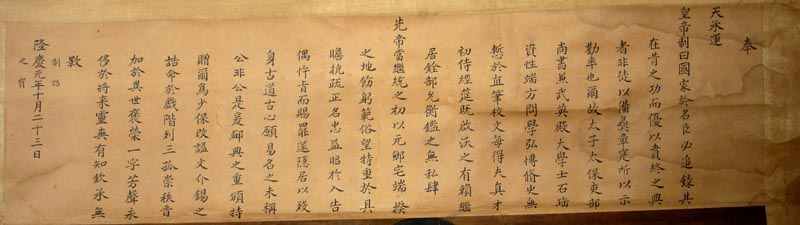 奉
天承運
皇帝制曰國家於名臣必追錄其
在昔之功而優以貴終之典
者非徒以備哀榮寔所以示
勸率也爾故太子太保吏部
尚書兼武英殿大學士石珤
資性端方問學弘博脩史無
慙於直筆校文每得夫真才
初侍經筵既啟沃之有賴繼
居銓部允衡鑑之無私肆
先帝當繼統之初以元卿宅端揆
之地飭躬範俗望特重於具
瞻抗疏正名忠益昭於入告
偶忤旨而賜罷遂隱居以歿
身古道古心願易名之未稱
公非公是爰卹典之重頒特
贈爾為少保改謚文介錫之
誥命於戲階列三孤崇秩晉
加於異世褒榮一字芳聲永
侈於將來靈爽有知欽承無
斁
制誥
隆慶元年十月二十三日
之寶